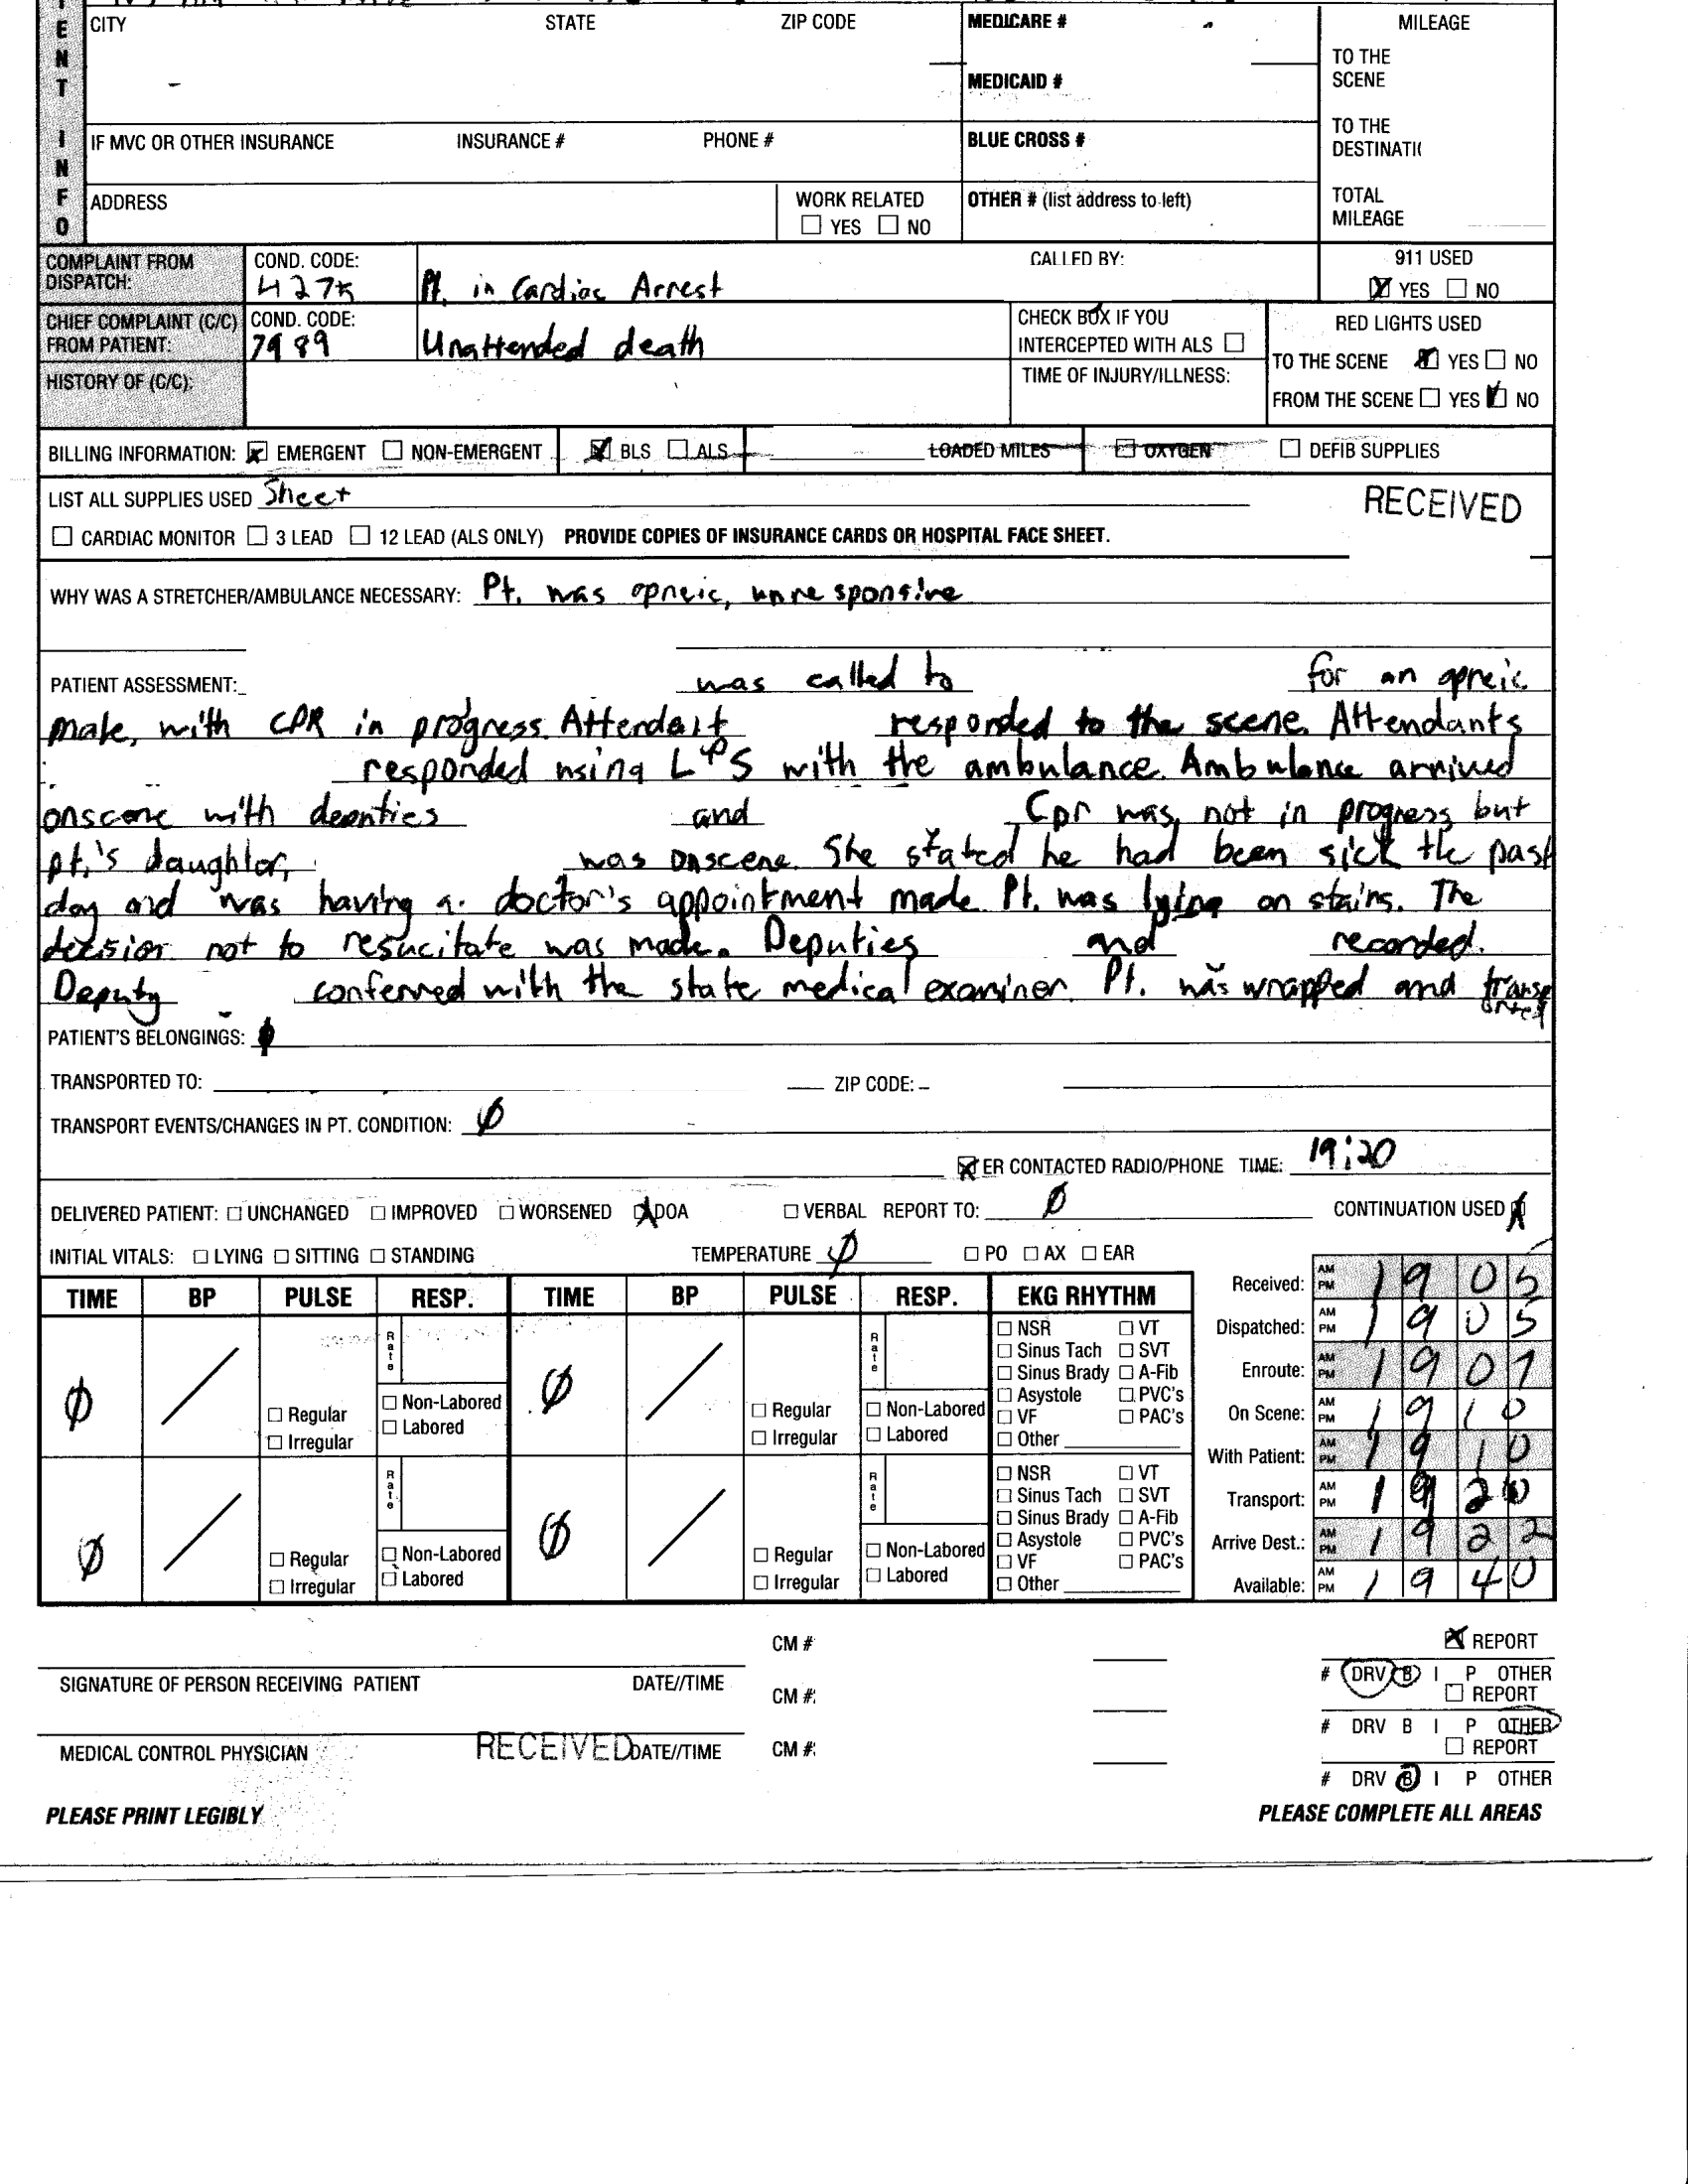 E CITY STATE ZIP CODE MEDICARE # MILEAGE
N TO THE
T MEDICAID # SCENE
I IF MVC OR OTHER INSURANCE INSURANCE # PHONE # BLUE CROSS # TO THE
N DESTINATI
F ADDRESS WORK RELATED OTHER # (list address to left) TOTAL
O ☐ YES ☐ NO MILEAGE
COMPLAINT FROM COND. CODE: CALLED BY: 911 USED
DISPATCH: 4275 Pt. in Cardiac Arrest ☒ YES ☐ NO
CHIEF COMPLAINT (C/C) COND. CODE: CHECK BOX IF YOU RED LIGHTS USED
FROM PATIENT: 7989 Unattended death INTERCEPTED WITH ALS ☐ TO THE SCENE ☒ YES ☐ NO
HISTORY OF (C/C): TIME OF INJURY/ILLNESS: FROM THE SCENE ☐ YES ☒ NO
BILLING INFORMATION: ☒ EMERGENT ☐ NON-EMERGENT ☒ BLS ☐ ALS LOADED MILES ☐ OXYGEN ☐ DEFIB SUPPLIES
LIST ALL SUPPLIES USED Sheet RECEIVED
☐ CARDIAC MONITOR ☐ 3 LEAD ☐ 12 LEAD (ALS ONLY) PROVIDE COPIES OF INSURANCE CARDS OR HOSPITAL FACE SHEET.
WHY WAS A STRETCHER/AMBULANCE NECESSARY: Pt. was apneic, unresponsive
PATIENT ASSESSMENT: was called to for an apneic
male, with CPR in progress. Attendant responded to the scene. Attendants
responded using L+S with the ambulance. Ambulance arrived
onscene with deputies and Cpr was not in progress but
pt.'s daughter, was onscene. She stated he had been sick the past
day and was having a doctor's appointment made. Pt. was lying on stairs. The
decision not to resucitate was made. Deputies and recorded.
Deputy conferred with the state medical examiner. Pt. was wrapped and transported
PATIENT'S BELONGINGS: ϕ
TRANSPORTED TO: ZIP CODE:
TRANSPORT EVENTS/CHANGES IN PT. CONDITION: ϕ
☒ ER CONTACTED RADIO/PHONE TIME: 19:20
DELIVERED PATIENT: ☐ UNCHANGED ☐ IMPROVED ☐ WORSENED ☒ DOA ☐ VERBAL REPORT TO: ϕ CONTINUATION USED ☒
INITIAL VITALS: ☐ LYING ☐ SITTING ☐ STANDING TEMPERATURE ϕ ☐ PO ☐ AX ☐ EAR
TIME BP PULSE RESP. TIME BP PULSE RESP. EKG RHYTHM Received: AM PM 1905
Rate Rate ☐ NSR ☐ VT Dispatched: AM PM 1905
☐ Sinus Tach ☐ SVT
☐ Sinus Brady ☐ A-Fib Enroute: AM PM 1907
ϕ / ☐ Regular ☐ Non-Labored ϕ / ☐ Regular ☐ Non-Labored ☐ Asystole ☐ PVC's
☐ Irregular ☐ Labored ☐ Irregular ☐ Labored ☐ VF ☐ PAC's On Scene: AM PM 1910
☐ Other
With Patient: AM PM 1910
Rate Rate ☐ NSR ☐ VT
☐ Sinus Tach ☐ SVT Transport: AM PM 1920
☐ Sinus Brady ☐ A-Fib
ϕ / ☐ Regular ☐ Non-Labored ϕ / ☐ Regular ☐ Non-Labored ☐ Asystole ☐ PVC's Arrive Dest.: AM PM 1922
☐ Irregular ☐ Labored ☐ Irregular ☐ Labored ☐ VF ☐ PAC's
☐ Other Available: AM PM 1940
CM # ☒ REPORT
SIGNATURE OF PERSON RECEIVING PATIENT DATE//TIME # DRV B I P OTHER
CM # ☐ REPORT
# DRV B I P OTHER
MEDICAL CONTROL PHYSICIAN RECEIVED DATE//TIME CM # ☐ REPORT
# DRV B I P OTHER
PLEASE PRINT LEGIBLY PLEASE COMPLETE ALL AREAS